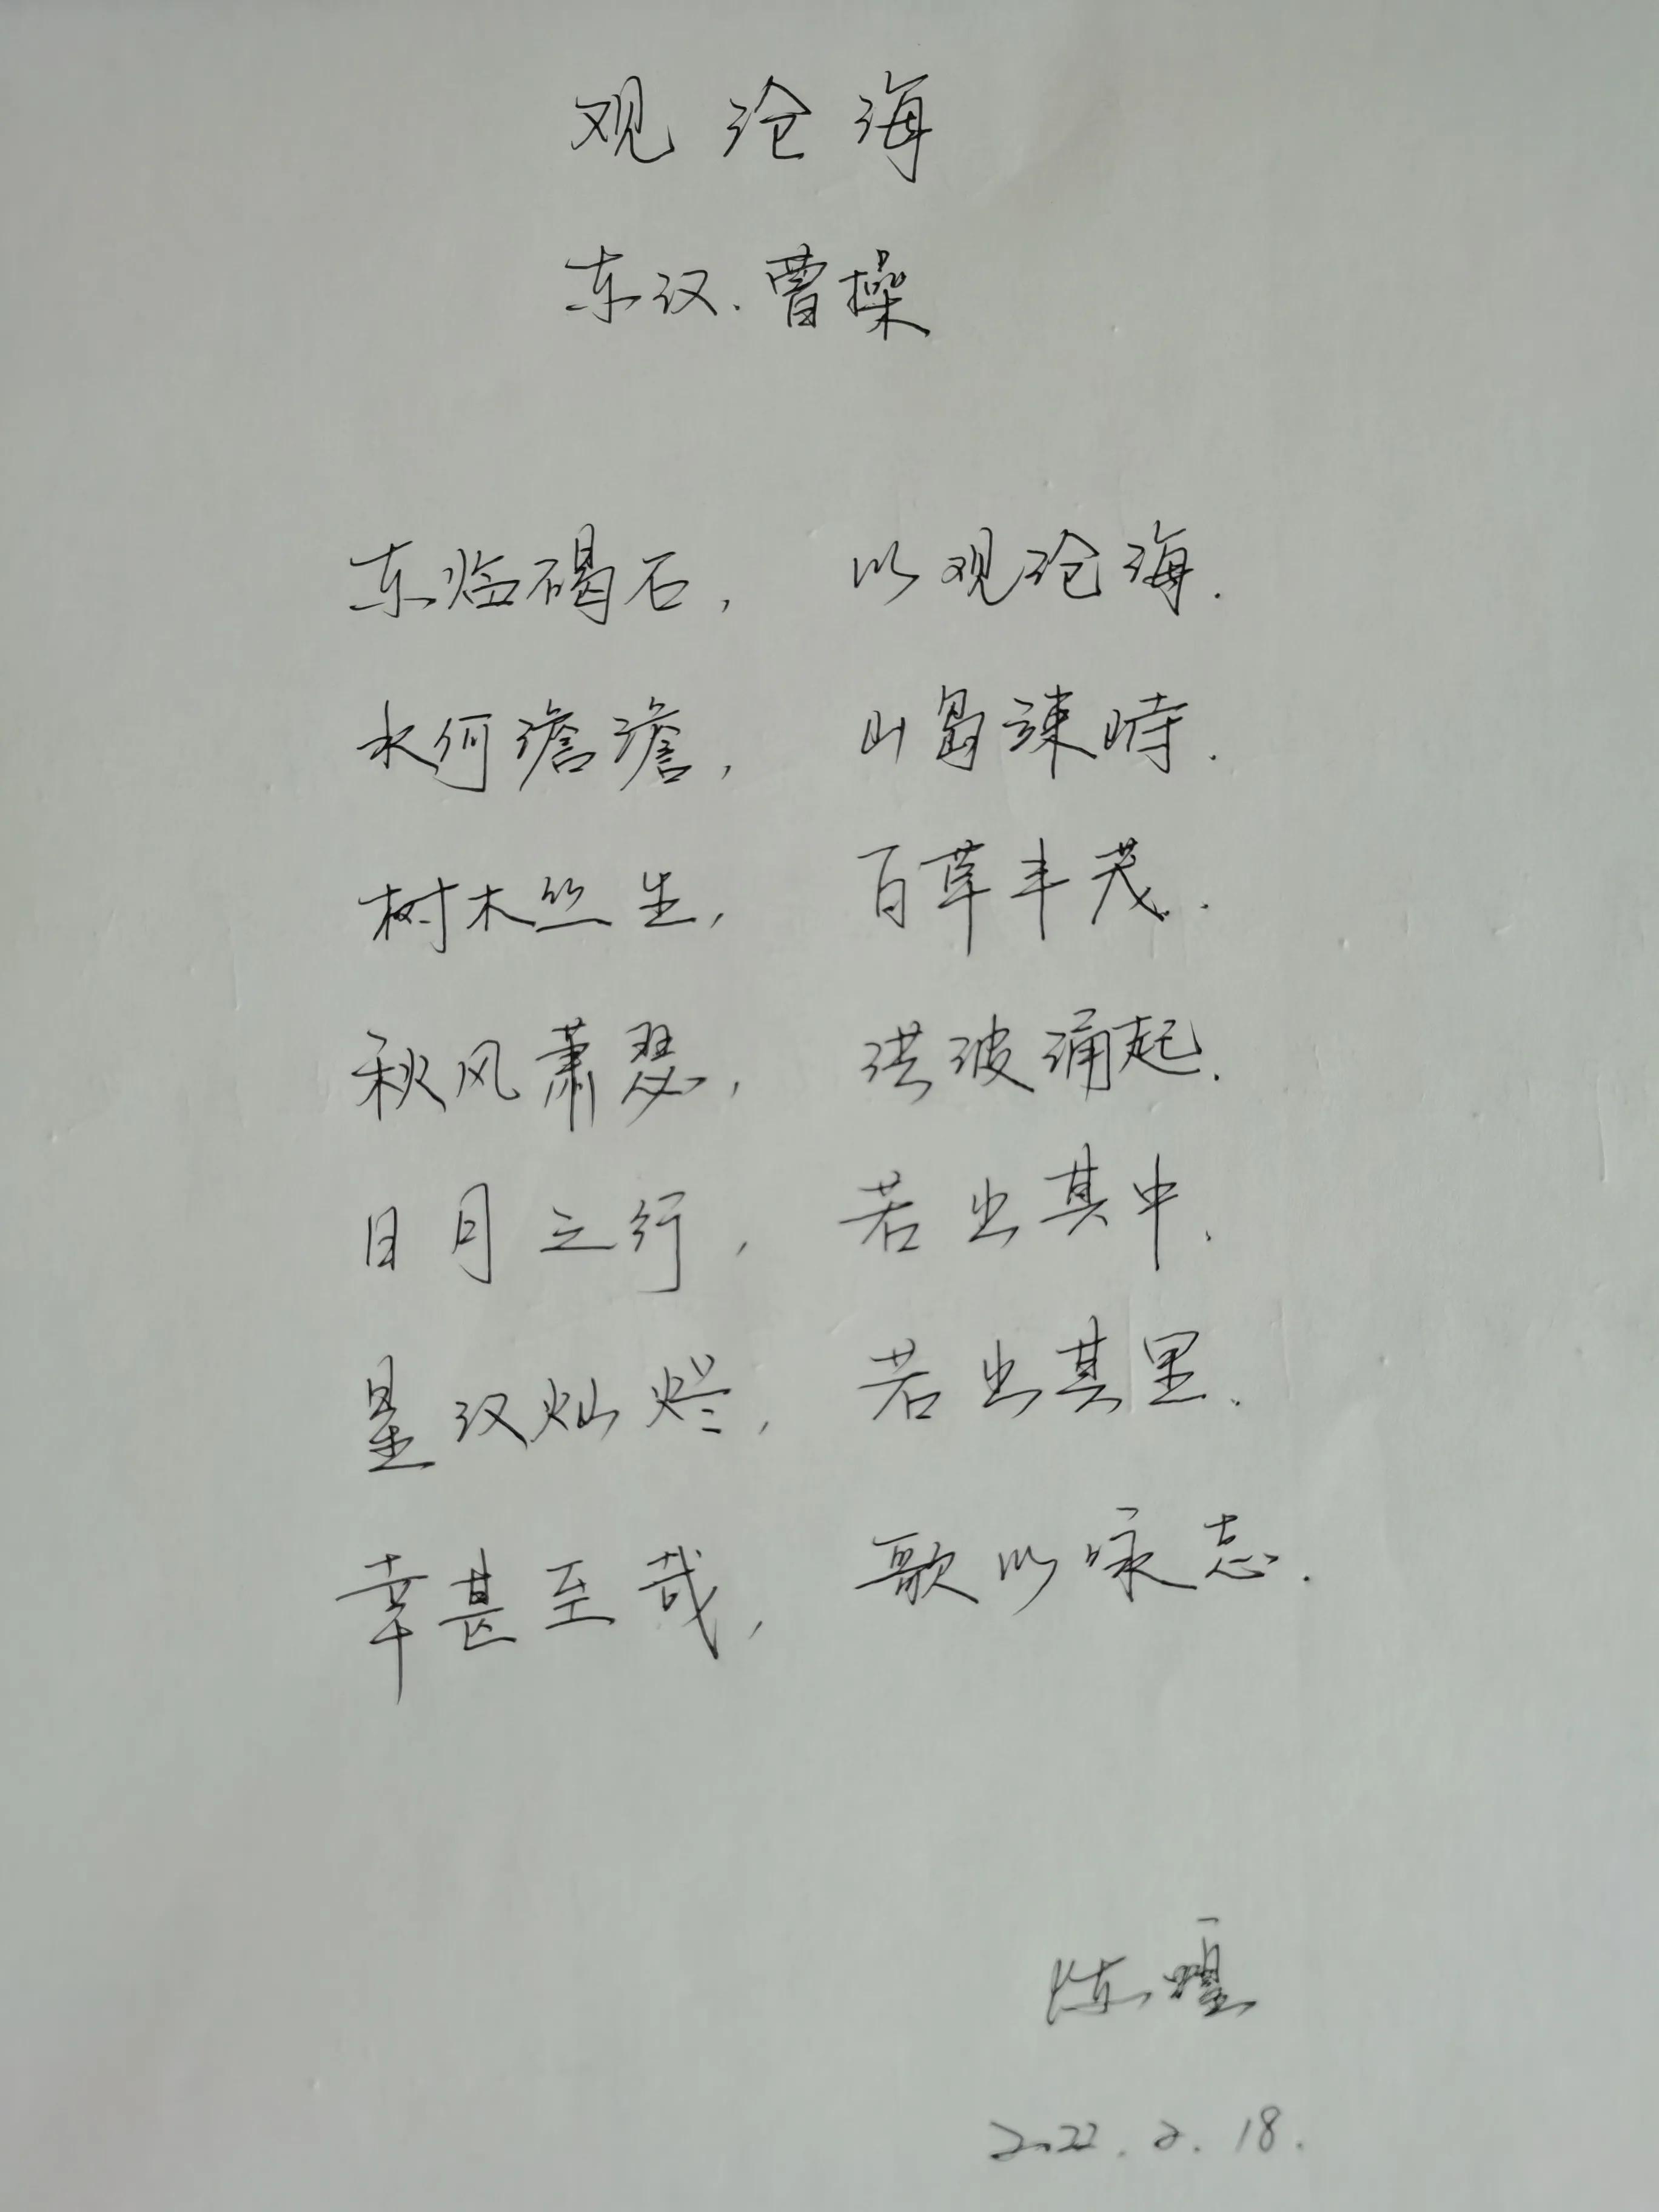 观沧海
东汉.曹操
东临碣石, 以观沧海.
水何澹澹, 山岛竦峙.
树木丛生, 百草丰茂.
秋风萧瑟, 洪波涌起.
日月之行, 若出其中.
星汉灿烂, 若出其里.
幸甚至哉, 歌以咏志.
陈
2022.2.18.